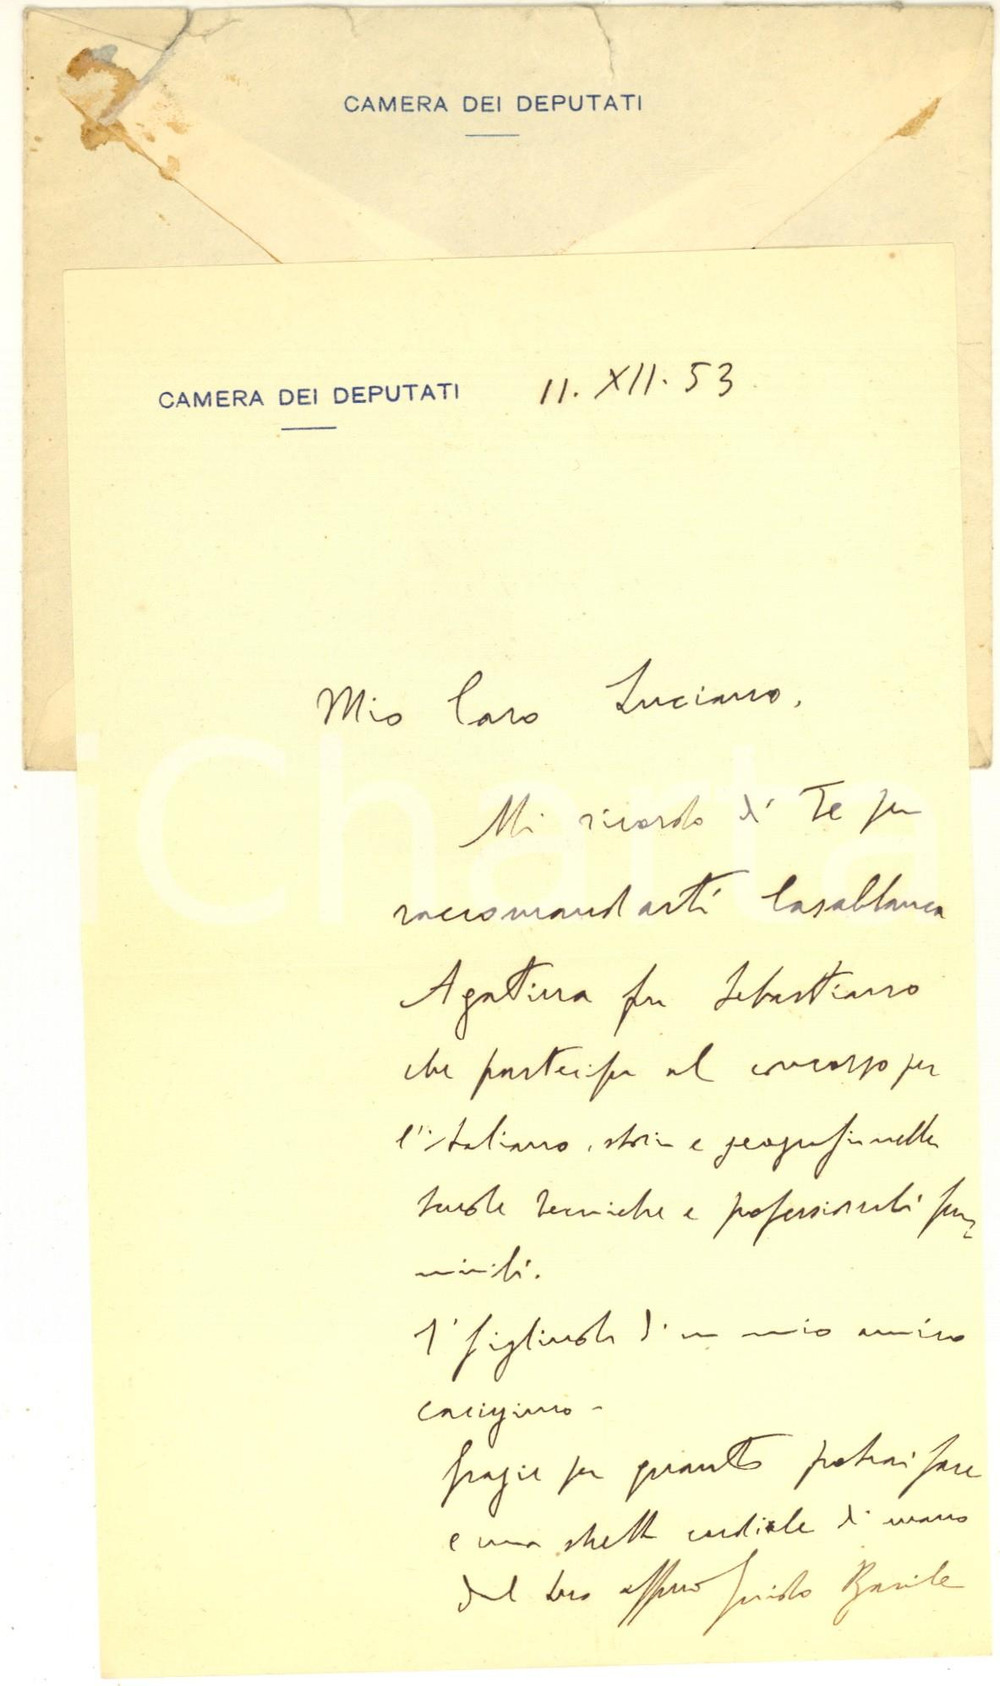 CAMERA DEI DEPUTATI
CAMERA DEI DEPUTATI 11. XII. 53
Mio Caro Luciano,
Mi ricordo di Te per
raccomandarti Casablanca
Agatina fu Sebastiano
che partecipa al concorso per
l'italiano, storia e geografia nelle
scuole tecniche e professionali fem
minili.
È figliuola di un mio amico
carissimo -
Grazie per quanto potrai fare
e una stretta cordiale di mano
dal tuo aff.mo Guido Basile
iCharta